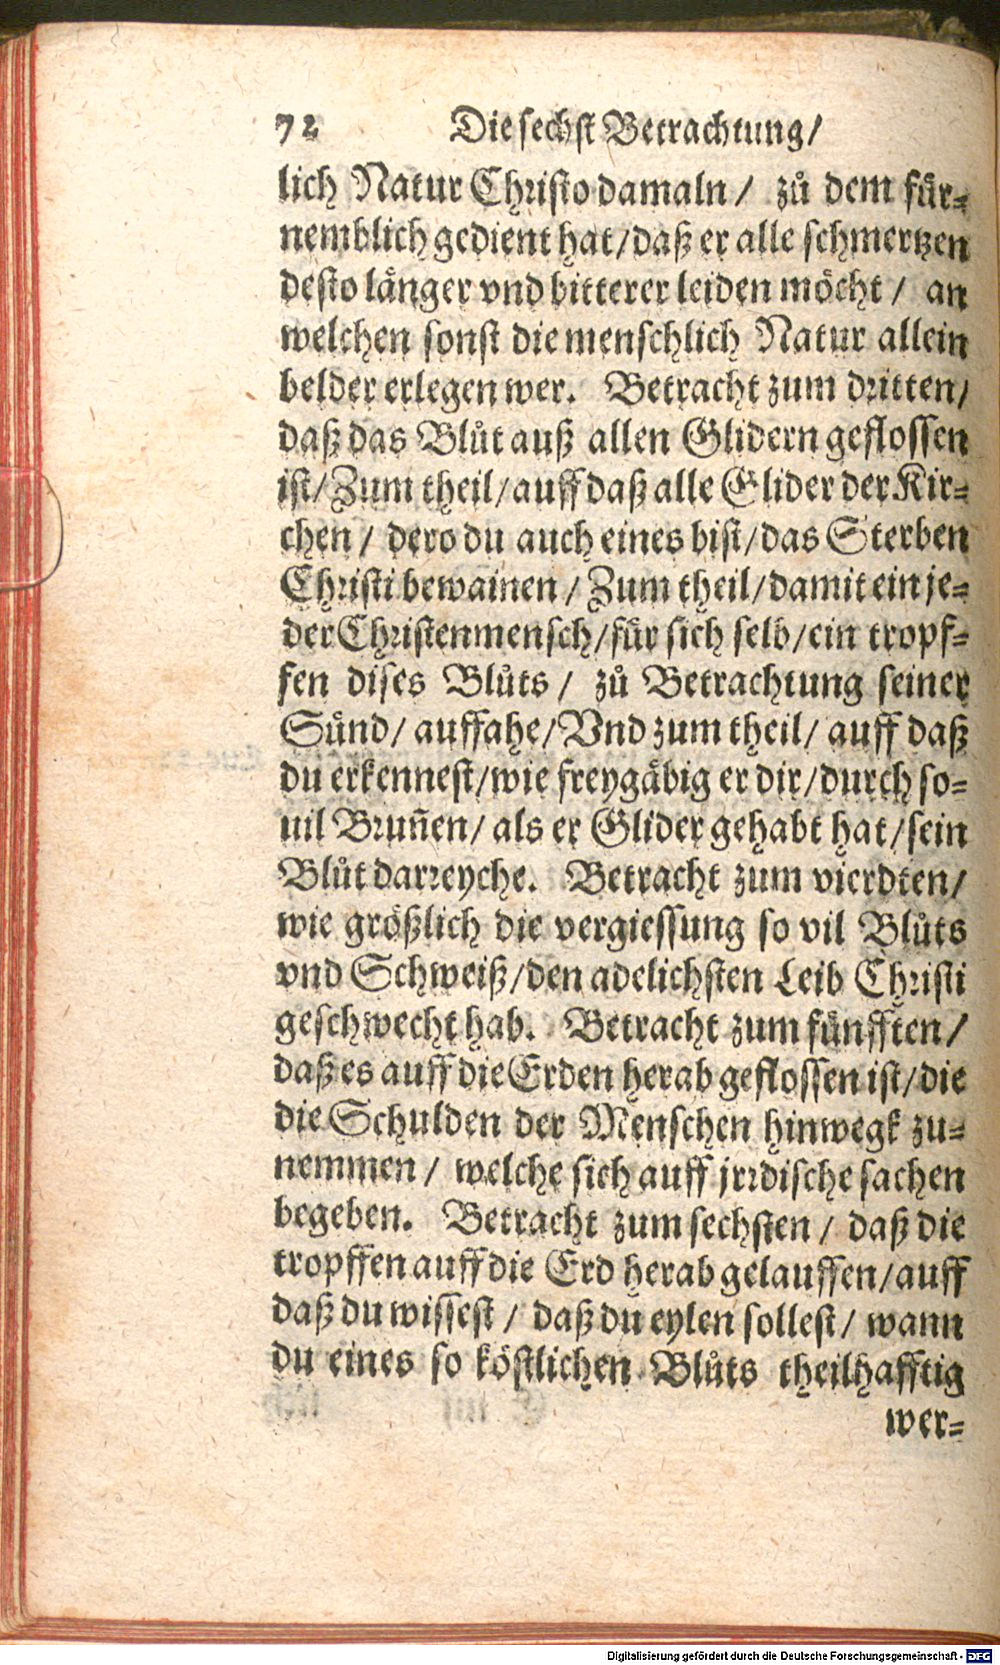 72 Die sechst Betrachtung/
lich Natur Christo damaln / zů dem fůr⸗
nemblich gedient hat/daß er alle schmertzen
desto länger vnd bitterer leiden möcht / an
welchen sonst die menschlich Natur allein
belder erlegen wer. Betracht zum dritten/
daß das Blůt auß allen Glidern geflossen
ist/Zum theil/auff daß alle Glider der Kir⸗
chen / dero du auch eines bist/das Sterben
Christi bewainen / Zum theil/damit ein je⸗
der Christenmensch/für sich selb/ein tropf⸗
fen dises Blůts / zů Betrachtung seiner
Sünd/ auffahe/Vnd zum theil/ auff daß
du erkennest/wie freygäbig er dir/durch so⸗
uil Bruñen/ als er Glider gehabt hat/sein
Blůt darreyche. Betracht zum vierdten/
wie größlich die vergiessung so vil Blůts
vnd Schweiß/den adelichsten Leib Christi
geschwecht hab. Betracht zum fünfften/
daß es auff die Erden herab geflossen ist/die
die Schulden der Menschen hinwegk zu⸗
nemmen / welche sich auff jrrdische sachen
begeben. Betracht zum sechsten / daß die
tropffen auff die Erd herab gelauffen/auff
daß du wissest / daß du eylen sollest/ wann
du eines so köstlichen Blůts theilhafftig
wer⸗
Digitalisierung gefördert durch die Deutsche Forschungsgemeinschaft - DFG